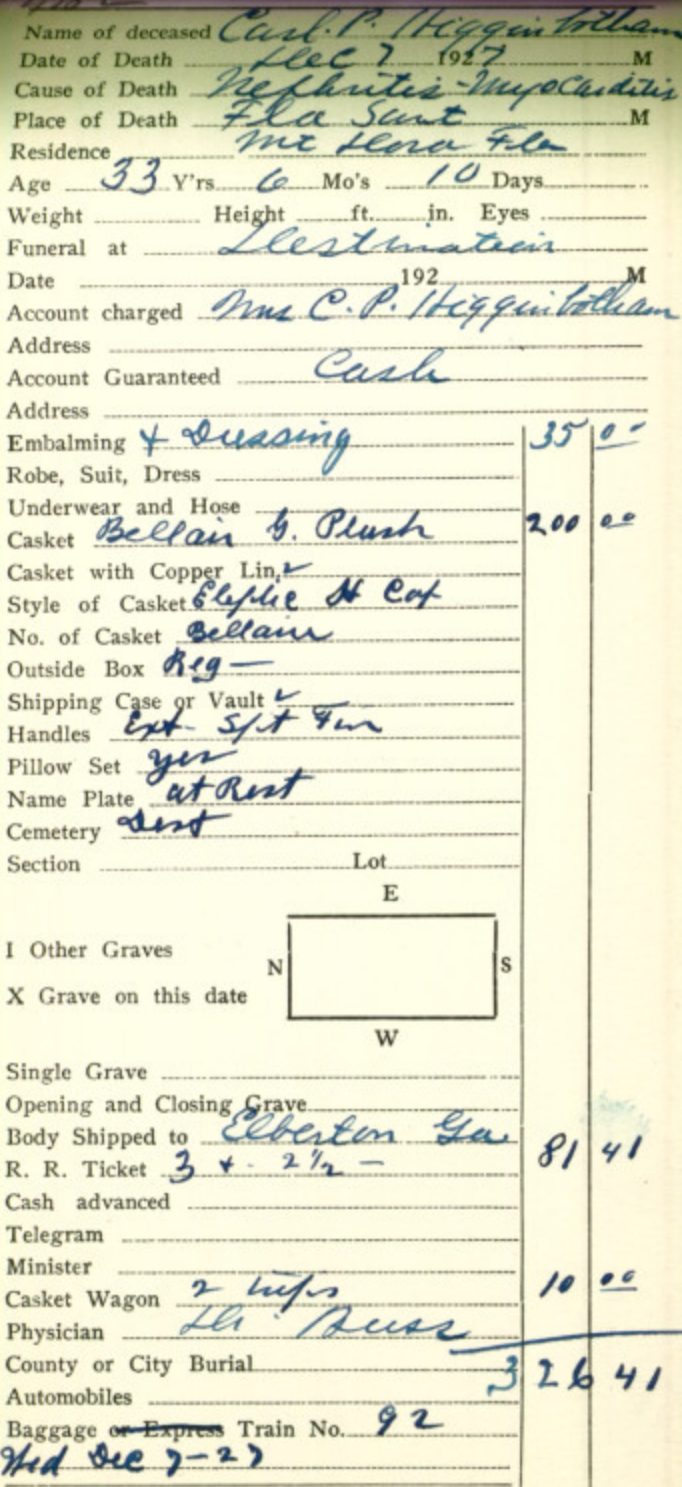 Name of deceased Carl. P. Higginbotham
Date of Death Dec 7 1927 M
Cause of Death Nephritis - Myocarditis
Place of Death Fla Sant M
Residence Mt Dora Fla
Age 33 Y'rs 6 Mo's 10 Days
Weight Height ft. in. Eyes
Funeral at Destination
Date 192 M
Account charged Mrs C. P. Higginbotham
Address
Account Guaranteed Cash
Address
Embalming + Dressing 35 00
Robe, Suit, Dress
Underwear and Hose
Casket Bellair G. Plush 200 00
Casket with Copper Lin. ✓
Style of Casket Eliptic
No. of Casket Bellair
Outside Box Reg —
Shipping Case or Vault ✓
Handles Ext
Pillow Set yes
Name Plate at Rest
Cemetery Dest
Section Lot
E
I Other Graves
N S
X Grave on this date
W
Single Grave
Opening and Closing Grave
Body Shipped to Elberton Ga
R. R. Ticket 3 + 2 1/2 — 81 41
Cash advanced
Telegram
Minister
Casket Wagon 2 trips 10 00
Physician Dr.
County or City Burial 326 41
Automobiles
Baggage or Express Train No. 92
Wed Dec 7-27